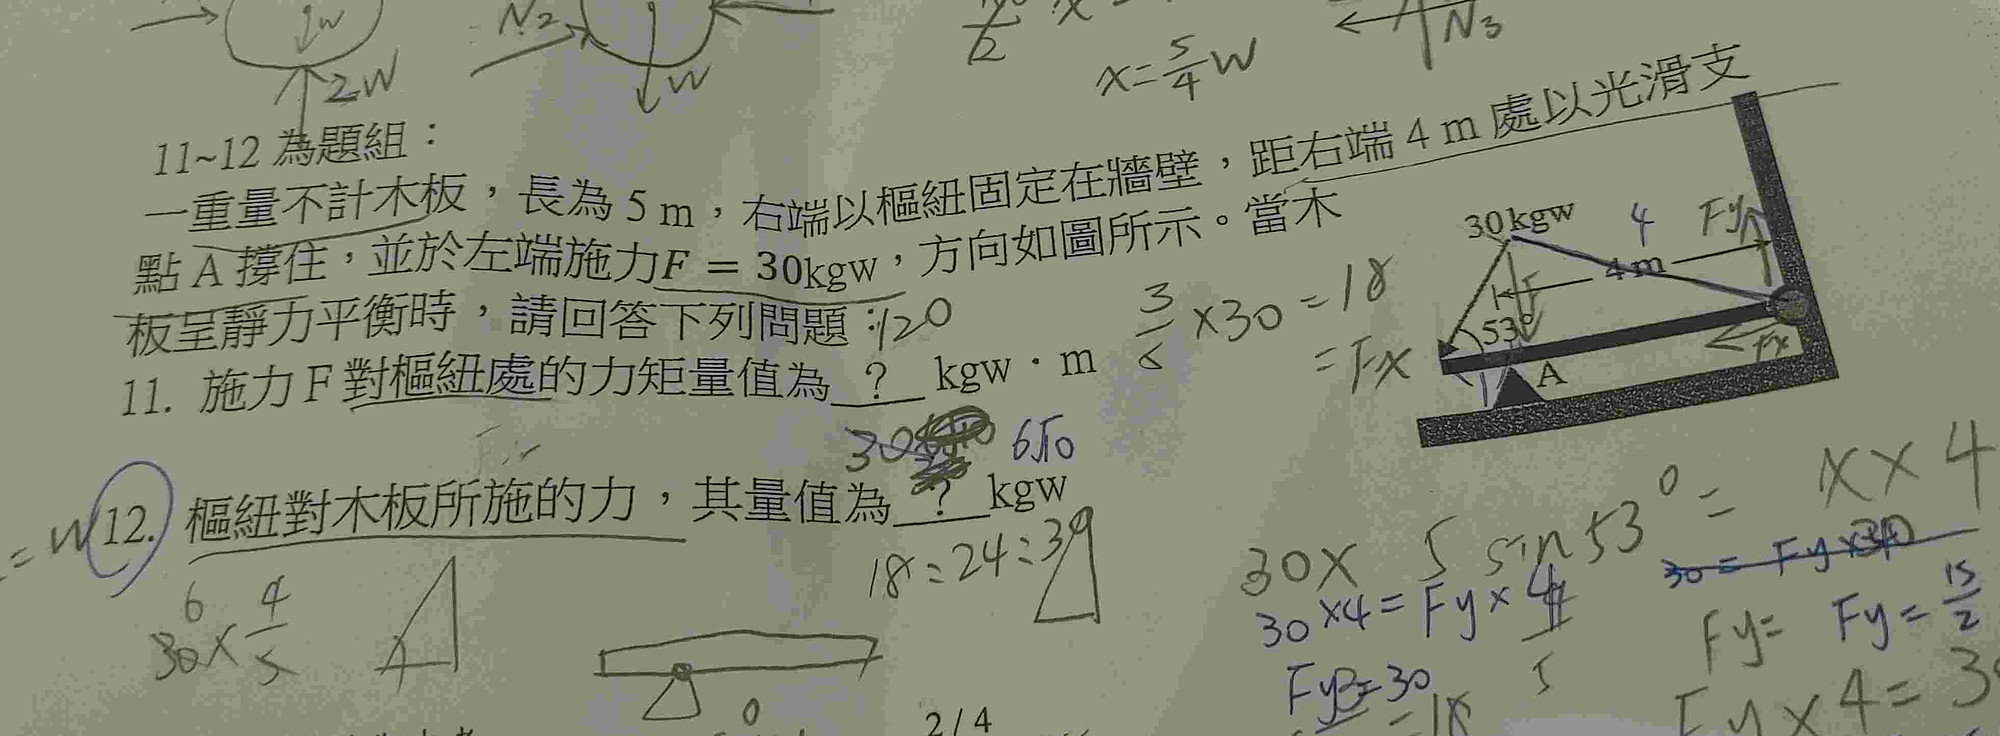 W
2W
N2
W
x = 5/4 W
N3
11~12 為題組：
一重量不計木板，長為 5 m，右端以樞紐固定在牆壁，距右端 4 m 處以光滑支
點 A 撐住，並於左端施力F = 30kgw，方向如圖所示。當木
板呈靜力平衡時，請回答下列問題：
120
30 kgw
4
Fy
4 m
53°
Fx
A
3/5 × 30 = 18
= Fx
11. 施力 F 對樞紐處的力矩量值為 ? kgw · m
6√10
= W
12. 樞紐對木板所施的力，其量值為 ? kgw
18 : 24 : 30
30 × 4/5
6
30 × 5 sin 53° = x × 4
30 × 4 = Fy × 4
Fy = 30
Fy =
Fy = 15/2
Fy × 4 =
= 18
5
0
2 / 4